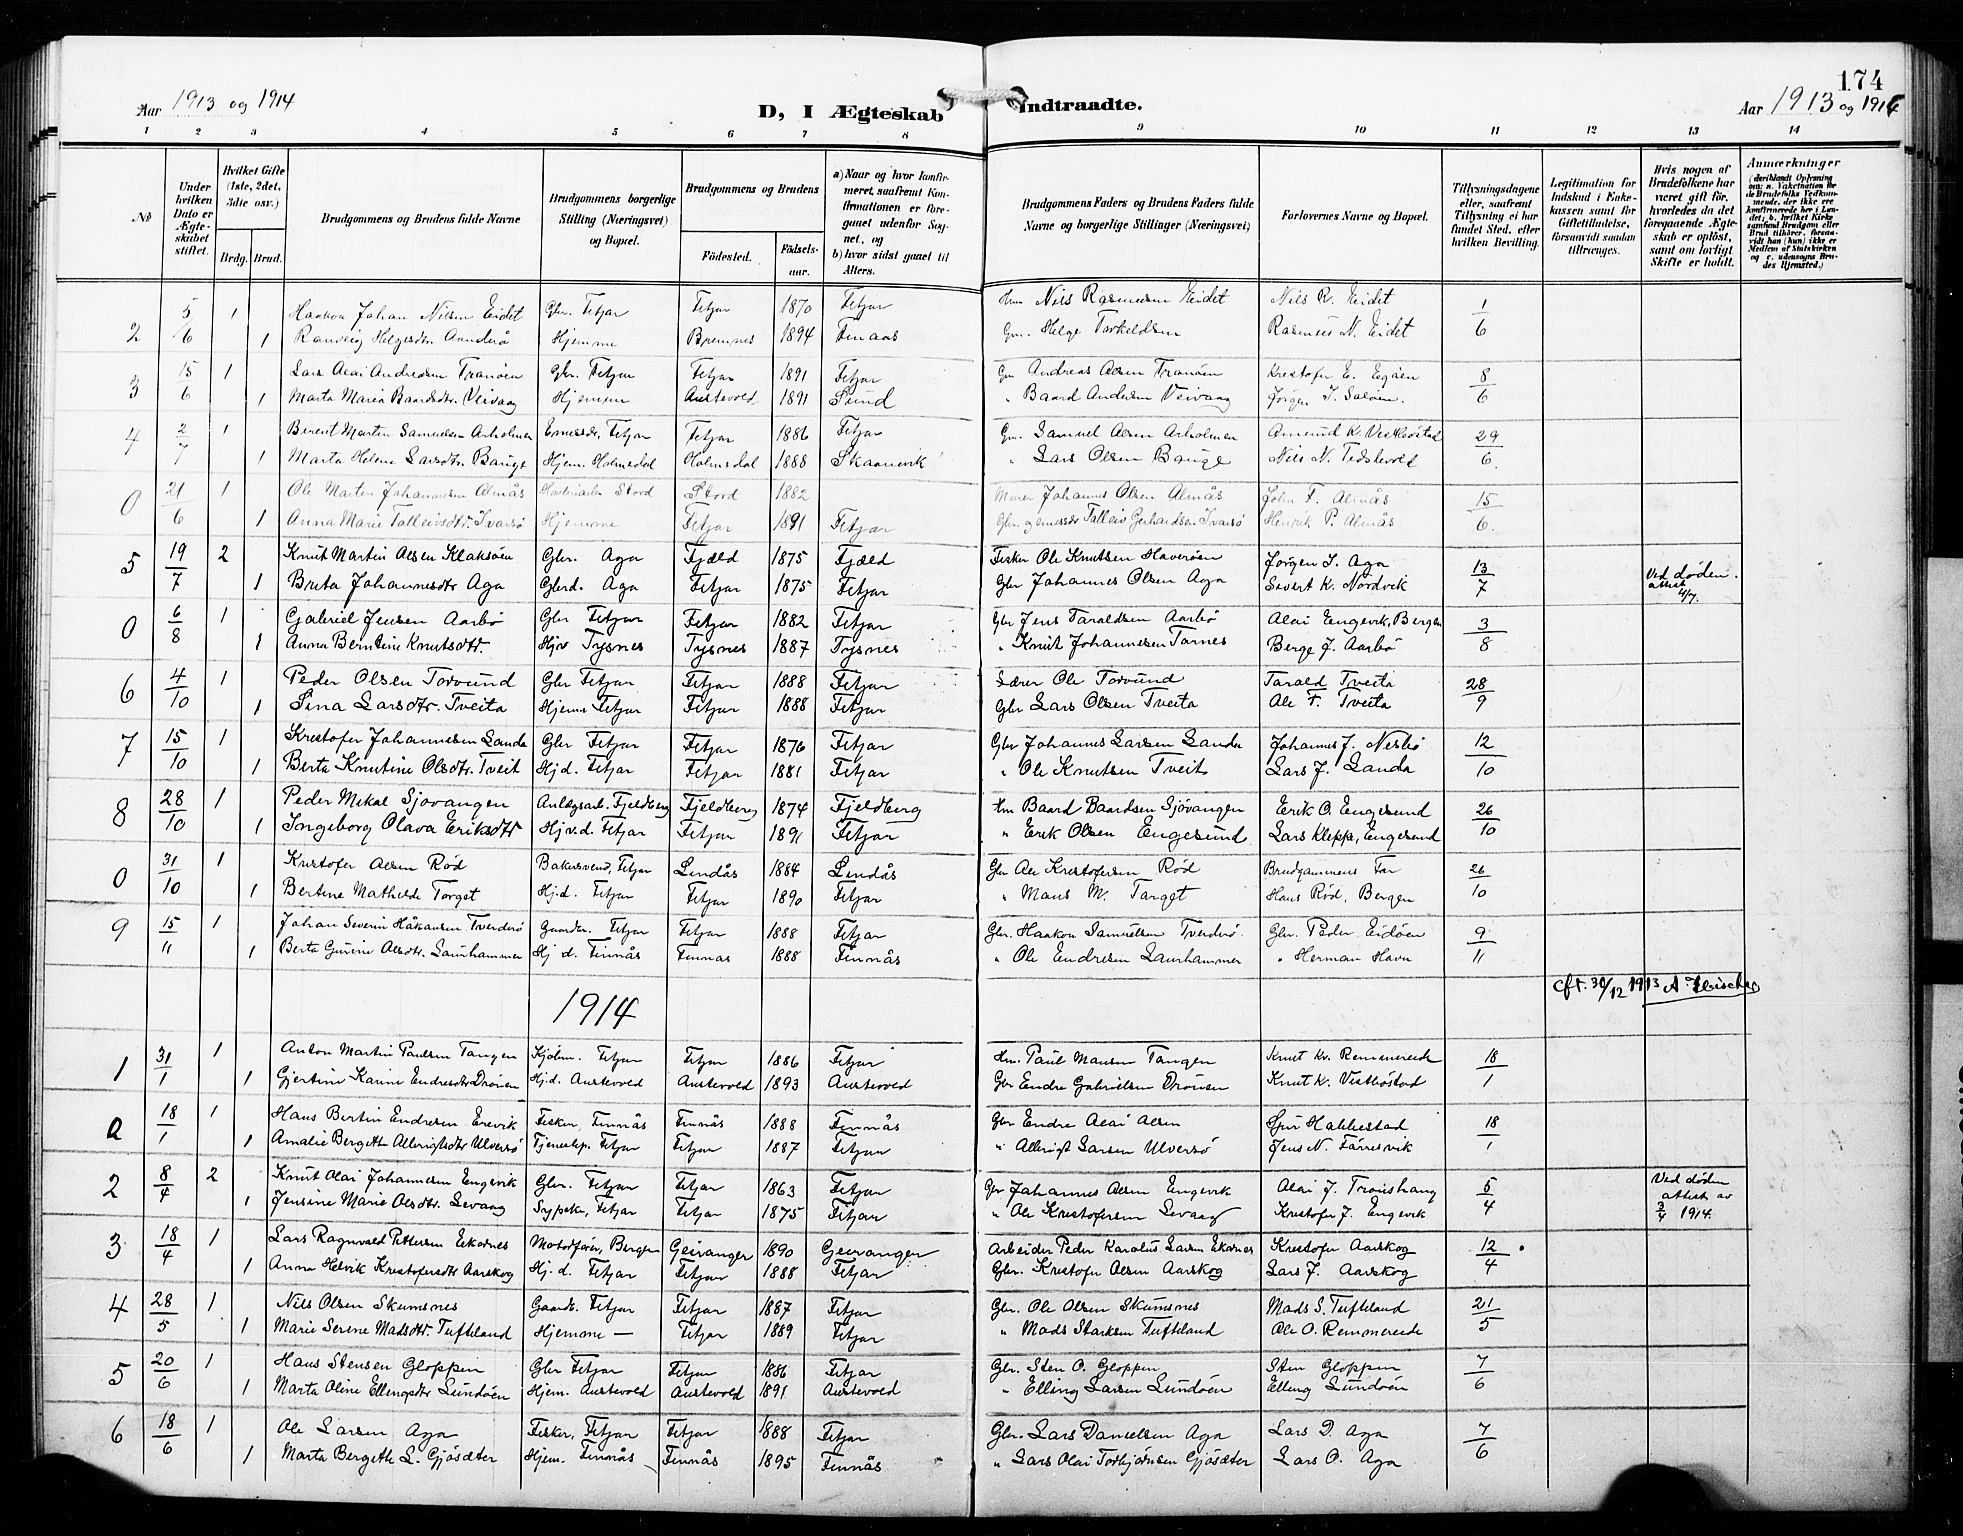 174
Aar 1913 og 1914
D, I Ægteskab Indtraadte.
Aar 1913 og 1914
1 2 3 4 5 6 7 8 9 10 11 12 13 14
No
Under hvilken Dato er Ægteskabet stiftet.
Hvilket Gifte (1ste, 2det, 3die osv.)
Brdg. Brud.
Brudgommens og Brudens fulde Navne
Brudgommens borgerlige Stilling (Næringsvei) og Bopæl.
Brudgommens og Brudens
Födested. Födselsaar.
a) Naar og hvor konfirmeret, saafremt Konfirmationen er foregaaet udenfor Sognet, og
b) hvor sidst gaaet til Alters.
Brudgommens Faders og Brudens Faders fulde Navne og borgerlige Stillinger (Næringsvei)
Forlovernes Navne og Bopæl.
Tillysningsdagene eller, saafremt Tillysning ei har fundet Sted, efter hvilken Bevilling.
Legitimation for Indskud i Enkekassen samt for Giftetilladelse, forsaavidt saadan tiltrænges.
Hvis nogen af Brudefolkene har været gift för, hvorledes da det foregaaende Ægteskab er oplöst, samt om lovligt Skifte er holdt.
Anmærkninger
5 1 Haakon Johan Nilsen Eidet Gbr. Fitjar Fitjar 1870 Fitjar Hm Nils Rasmussen Eidet Nils R. Eidet 1
2 6 1 Ranveig Helgesdtr. Hjemme Bremnes 1894 Finaas Gm. Helge Torkeldsen Rasmus N. Eidet 6
15 1 Lars Alai Andreasen Tranöen Gbr. Fitjar Fitjar 1891 Fitjar Gm Andreas Alsen Tranöen Kristofer E. Egöen 8
3 6 1 Marta Maria Baardsdtr. Veivaag Hjemme Austevold 1891 Sund " Baard Andersen Veivaag Jørgen J. 6
2 1 Berent Martin Samuelsen Arholmen Fitjar Fitjar 1886 Fitjar Gm. Samuel Alsen Arholmen Amund K. Vestbøstad 29
4 7 1 Marta Helene Larsdtr. Bauge Hjem. Holmedal Holmedal 1888 Skaanevik " Lars Olsen Bauge Nils N. 6.
21 1 Ole Martin Johannesen Almås Stord Stord 1882 Murer Johannes Olsen Almås John F. Almås 15
0 6 1 Anna Marie Talleivsdtr. Ivarsö Hjemme Fitjar 1891 Fitjar Talleiv Gerhardsen Ivarsö Henrik P. Almås 6.
5 19 2 Knut Martin Alsen Klaksöen Gbr. Aga Fjæld 1875 Fjæld Fisker Ole Knutsen Haverøen Jørgen J. Aga 13 Ved døden.
7 1 Brita Johannesdtr Aga Gbrd. Aga Fitjar 1875 Fitjar Gbr Johannes Olsen Aga Sivert K. Nordvik 7 attest 4/7.
6 1 Gabriel Jensen Aarbø Gbr Fitjar Fitjar 1882 Fitjar Gbr Jens Taraldsen Aarbø Alai Engevik, Bergen 3
0 8 1 Anna Berntine Knutsdtr. Hjv Tysnes Tysnes 1887 Tysnes " Knut Johannessen Tarnes Berge J. Aarbö 8
6 4 1 Peder Olsen Torvund Gbr Fitjar Fitjar 1888 Fitjar Lærer Ole Torvund Tarald Tveita 28
10 1 Sina Larsdtr. Tveita Hjeme Fitjar Fitjar 1888 Fitjar Gbr Lars Olsen Tveita Ole F. Tveita 9
15 1 Kristofer Johannessen Landa Gbr Fitjar Fitjar 1876 Fitjar Gbr Johannes Larsen Landa Johannes J. Nesbö 12
7 10 1 Berta Knutine Olsdtr. Tveit Hj.d. Fitjar Fitjar 1881 Fitjar " Ole Knutsen Tveit Lars J. Landa 10
28 1 Peder Mikal Sjövangen Anlægsarb. Fjeldberg Fjeldberg 1874 Fjeldberg Hm Baard Baardsen Sjövangen Erik O. Engesund 26
8 10 1 Ingeborg Olava Eriksdtr Hjv.d. Fitjar Fitjar 1891 Fitjar " Erik Olsen Engesund Lars Kleppe, Engesund 10
31 1 Kristofer Alsen Rød Bakersvend, Fitjar Lindås 1884 Lindås Gbr Ole Kristofersen Rød Brudgommens Far 26
0 10 1 Bertine Mathilde Torget Hj.d. Fitjar Fitjar 1890 Fitjar " Mons M. Torget Hans Rød, Bergen 10
9 15 1 Johan Severin Håkonsen Tverderö Gaardbr. Fitjar Fitjar 1888 Fitjar Gbr. Haakon Samuelsen Tverderö. Gbr. Peder Eidöen 9
11 1 Berta Gurine Olsdtr. Laurhammer Hj d. Finnås Finnas 1888 Finnås " Ole Endresen Laurhammer " Herman Havn 11
Cfr. 30/12 1913
1914
31 1 Anton Martin Paulsen Tangen Kjölm. Fitjar Fitjar 1886 Fitjar Hm. Paul Monsen Tangen Knut Kr. Remmereide 18
1 1 1 Gjertine Karine Endresdtr Drönen Hj.d. Austevold Austevold 1893 Austevold Gbr Endre Gabrielsen Drönen Knut K. Vestböstad 1
18 1 Hans Bertin Endresen Erevik Fisker, Finnås Finnås 1888 Finnås Gbr Endre Alai Alsen Hakkestad 18
a 1 1 Amalie Bergette Albrigtsdtr Ulversö Tjenestep. Fitjar Fitjar 1887 Fitjar " Albrigt Larsen Ulversö Jens N. Färresvik 1
8 2 Knut Olai Johannesen Engevik Gbr. Fitjar Fitjar 1863 Fitjar Gbr Johannes Alsen Engevik Alai J. Troüshang 5 Ved døden
2 4 1 Jensine Marie Olsdtr. Levaag Sypike, Fitjar Fitjar 1875 Fitjar " Ole Kristofersen Levaag Kristofer J. Engevik 4 attest av 3/4 1914.
18 1 Lars Ragnvald Pettersen Ekornes Motorfører, Bergen Geiranger 1890 Geiranger Arbeider Peder Karolus Larsen Ekornes Kristofer Aarskog 12
3 4 1 Anna Helvik Kristofersdtr Aarskog Hj. d. Fitjar Fitjar 1888 Fitjar Gbr. Kristofer Olsen Aarskog Lars J. Aarskog 4
4 28 1 Nils Olsen Skumsnes Gaardb. Fitjar Fitjar 1887 Fitjar Gbr. Ole Olsen Skumsnes Mads S. Tufteland 21
5 1 Marie Serine Madsdtr. Tufteland Hjemme — Fitjar 1889 Fitjar " Mads Starksen Tufteland Ole O. Remmereide 5
20 1 Hans Stensen Gloppen Gbr Fitjar Fitjar 1886 Fitjar Gbr. Sten O. Gloppen Sten Gloppen 7
5 6 1 Marta Oline Ellingsdtr Sundöen Hjem. Austevold Austevold 1891 Austevold " Elling Larsen Sundöen Elling Sundöen 6
18 1 Ole Larsen Aga Fisker, Fitjar Fitjar 1888 Fitjar Gbr. Lars Danielsen Aga Lars D. Aga 7
6 6 1 Marta Bergette L. Gjösæter Hjem. Finnås Finnås 1895 Finnås " Lars Olai Torbjörnsen Gjösæter Lars O. Aga 6